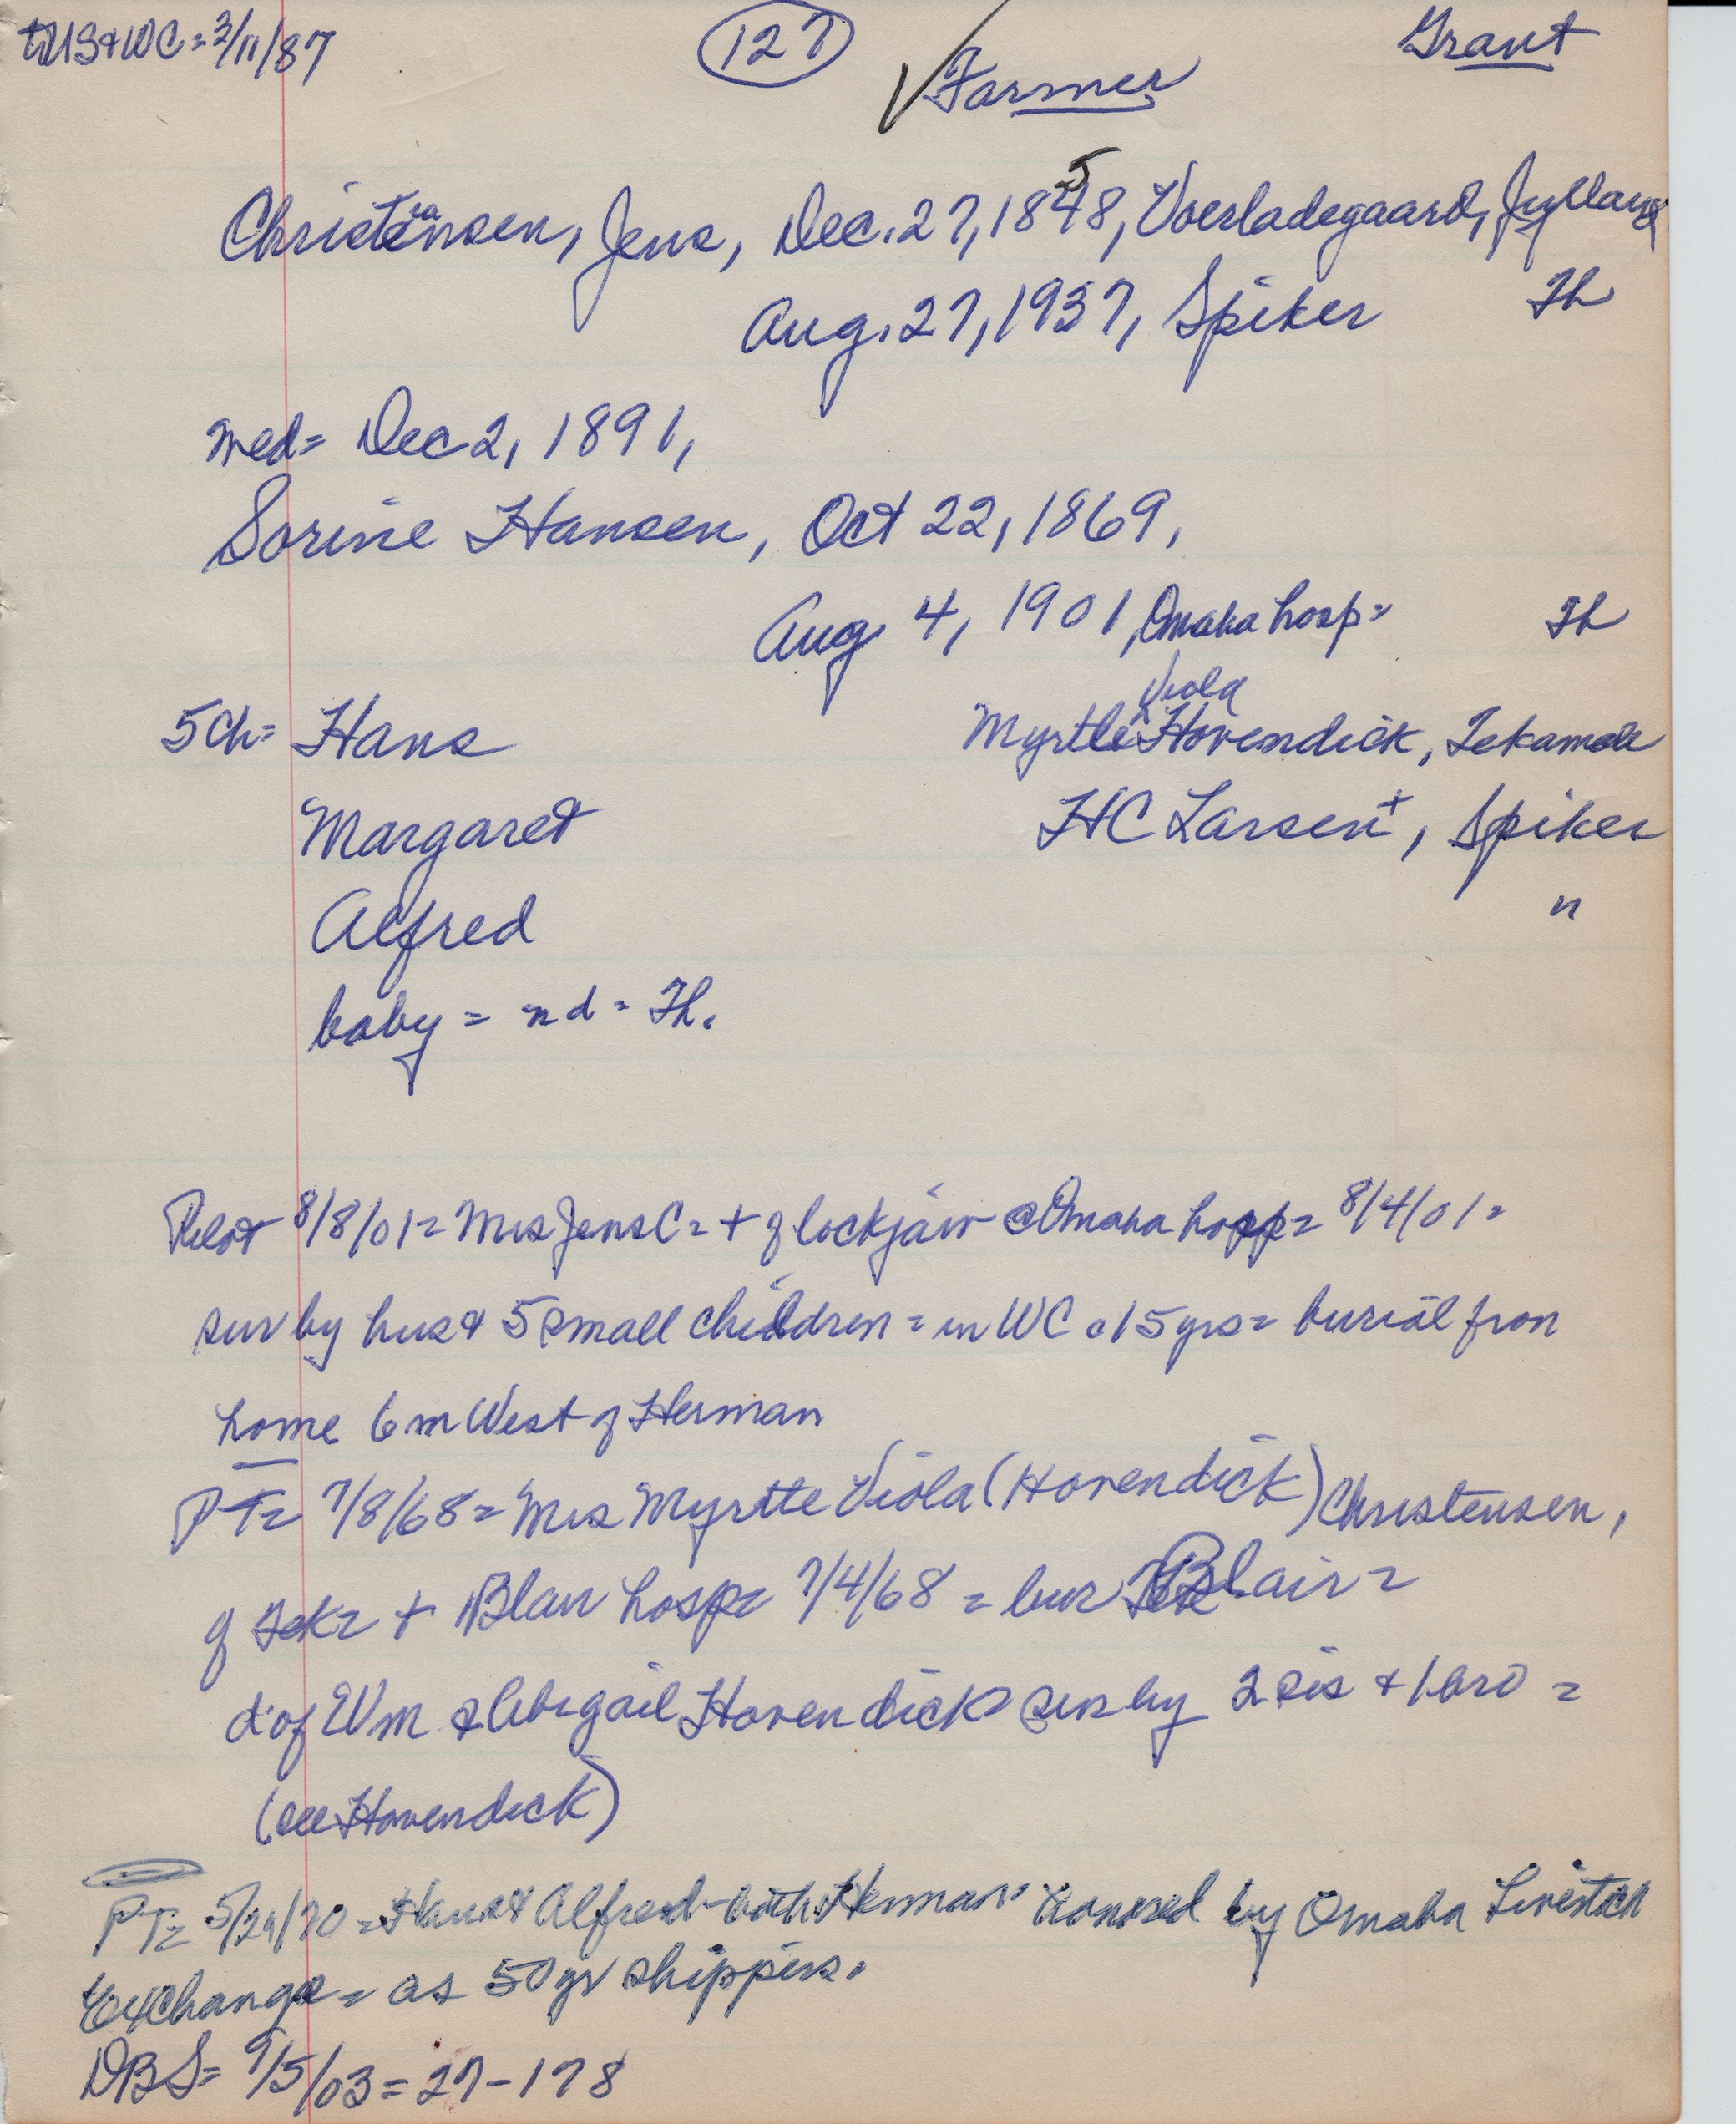 tUS&WC=3/11/87
127
Grant
Farmer
Christensen, Jens, Dec. 27, 1848, Voerladegaard, Jylland
ia
5
Aug. 27, 1937, Spiker Th
wed= Dec 2, 1891,
Sorine Hansen, Oct 22, 1869,
Aug. 4, 1901, Omaha hosp= Th
Viola
5 Ch= Hans Myrtle ^ Hovendick, Tekamah
Margaret HC Larsen+, Spiker
Alfred "
baby = nd = Th.
Pilot 8/8/01= Mrs Jens C= + of lockjaw @ Omaha hosp= 8/4/01=
sur by hus & 5 small children = in WC c15 yrs= burial fron
home 6 m West of Herman
PT= 7/8/68= Mrs Myrtte Viola (Hovendick) Christensen,
of Tek= + Blair hosp= 7/4/68 = bur Blair=
d of Wm & Abigail Hovendick= sur by 2 sis & 1 bro =
(see Hovendick)
PT= 5/29/70 = Hans & Alfred - both Herman= honored by Omaha Livestock
Exchange = as 50 yr shippers.
DBS= 9/5/03 = 27-178